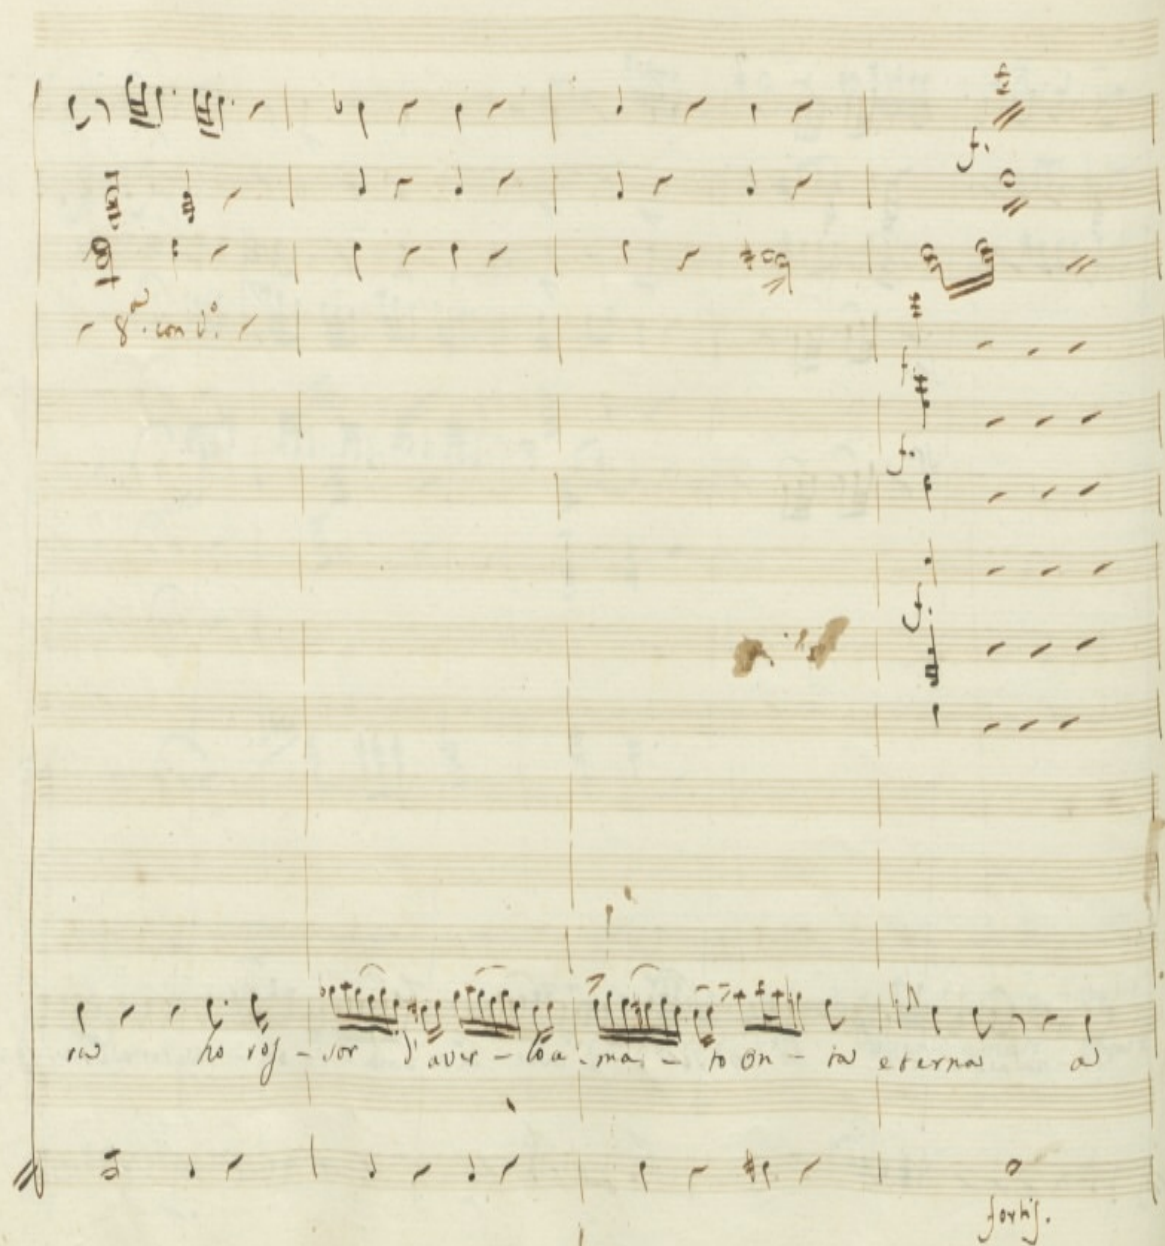 f.
8.ª con V.º
f.
f.
f.
ra ho ros - sor d'aver - lo a - ma - to On - ta eterna a
fortis.